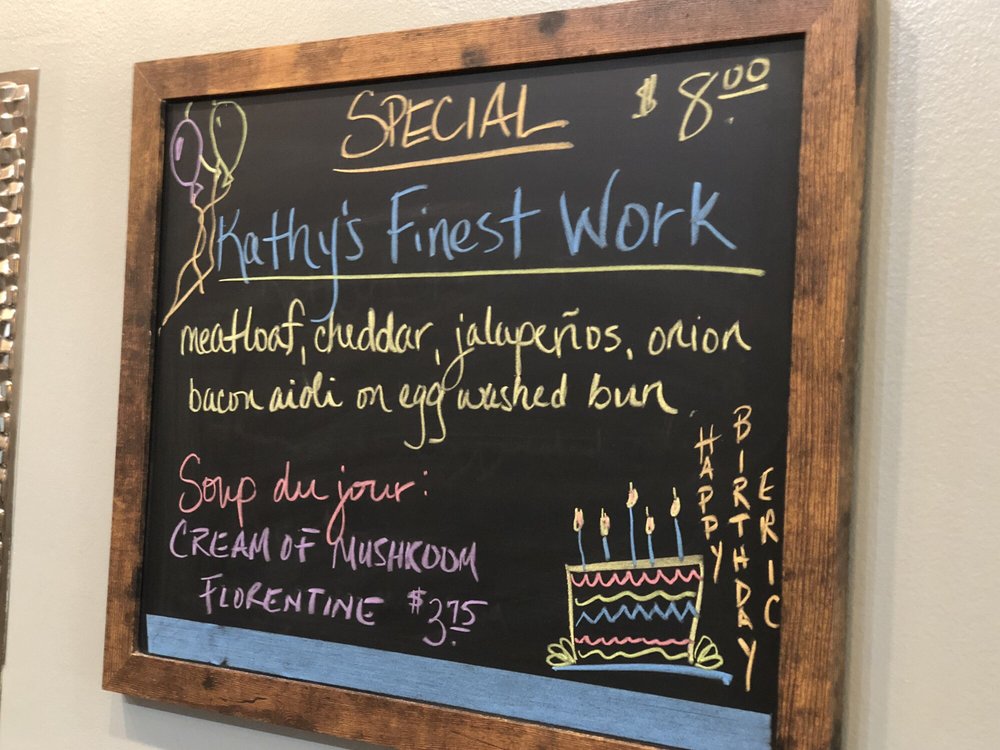 SPECIAL $8.00
Kathy's Finest Work
meatloaf, cheddar, jalapeños, onion
bacon aioli on egg washed bun
Soup du jour:
CREAM OF MUSHROOM
FLORENTINE $3.75
HAPPY
BIRTHDAY
ERIC